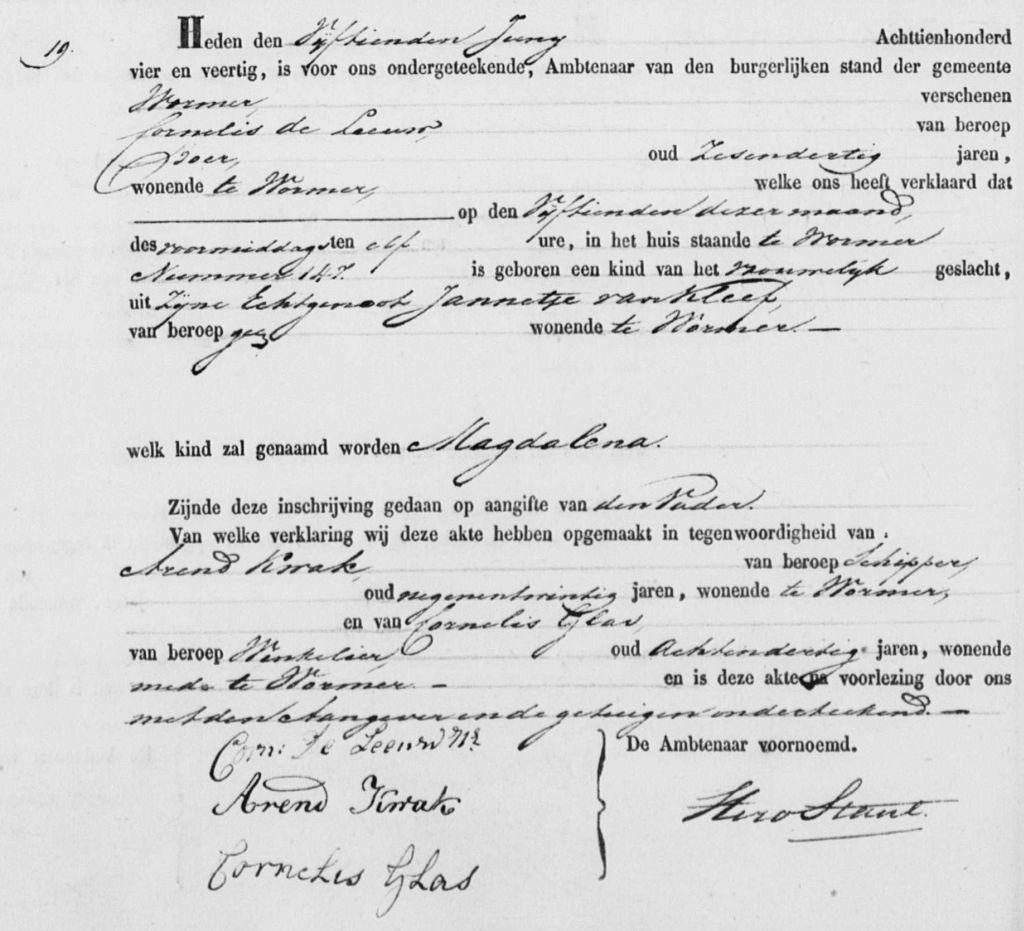 19.
Heden den Vijftienden Juny Achttienhonderd
vier en veertig, is voor ons ondergeteekende, Ambtenaar van den burgerlijken stand der gemeente
Wormer, verschenen
Cornelis de Leeuw, van beroep
Boer, oud Zesendertig jaren,
wonende te Wormer, welke ons heeft verklaard dat
op den Vijftienden dezer maand,
des voormiddags ten elf ure, in het huis staande te Wormer
Nummer 147. is geboren een kind van het vrouwelijk geslacht,
uit Zijne Echtgenoot Jannetje van Kleef,
van beroep geen wonende te Wormer. —
welk kind zal genaamd worden Magdalena.
Zijnde deze inschrijving gedaan op aangifte van den Vader.
Van welke verklaring wij deze akte hebben opgemaakt in tegenwoordigheid van.
Arend Kwak, van beroep Schipper,
oud negenentwintig jaren, wonende te Wormer,
en van Cornelis Glas,
van beroep Winkelier, oud Achtendertig jaren, wonende
mede te Wormer. — en is deze akte na voorlezing door ons
met den Aangever en de getuigen onderteekend. —
Corn: De Leeuw Nz De Ambtenaar voornoemd.
Arend Kwak
Hero Stant.
Cornelis Glas